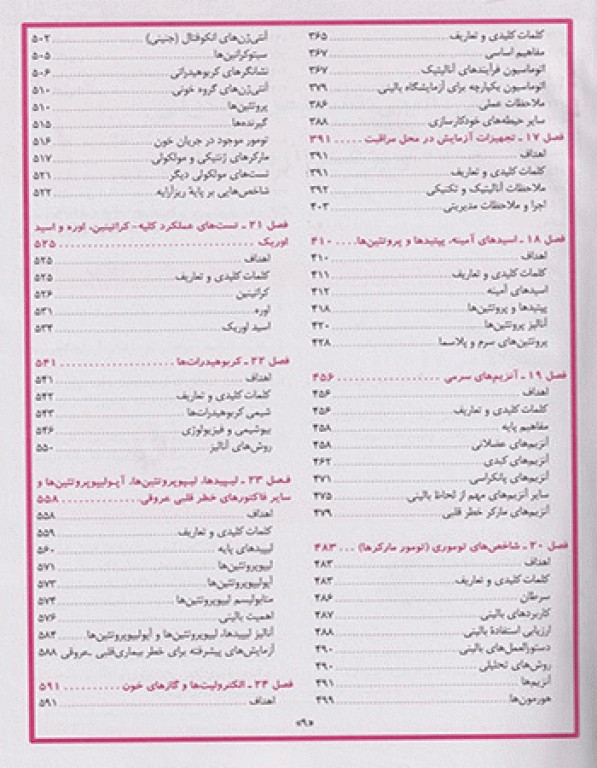 کلمات کلیدی و تعاریف ............ ۳۶۵
مفاهیم اساسی ............ ۳۶۷
اتوماسیون فرآیندهای آنالیتیک ............ ۳۶۷
اتوماسیون یکپارچه برای آزمایشگاه بالینی ............ ۳۷۹
ملاحظات عملی ............ ۳۸۶
سایر حیطه‌های خودکارسازی ............ ۳۸۸
فصل ۱۷ ـ تجهیزات آزمایش در محل مراقبت ..... ۳۹۱
اهداف ............ ۳۹۱
کلمات کلیدی و تعاریف ............ ۳۹۱
ملاحظات آنالیتیک و تکنیکی ............ ۳۹۲
اجرا و ملاحظات مدیریتی ............ ۴۰۳
فصل ۱۸ ـ اسیدهای آمینه، پپتیدها و پروتئین‌ها.... ۴۱۰
اهداف ............ ۴۱۰
کلمات کلیدی و تعاریف ............ ۴۱۱
اسیدهای آمینه ............ ۴۱۲
پپتیدها و پروتئین‌ها ............ ۴۱۸
آنالیز پروتئین‌ها ............ ۴۲۰
پروتئین‌های سرم و پلاسما ............ ۴۲۸
فصل ۱۹ ـ آنزیم‌های سرمی ............ ۴۵۶
اهداف ............ ۴۵۶
کلمات کلیدی و تعاریف ............ ۴۵۶
مفاهیم پایه ............ ۴۵۸
آنزیم‌های عضلانی ............ ۴۵۸
آنزیم‌های کبدی ............ ۴۶۲
آنزیم‌های پانکراسی ............ ۴۷۱
سایر آنزیم‌های مهم از لحاظ بالینی ............ ۴۷۵
آنزیم‌های مارکر خطر قلبی ............ ۴۷۹
فصل ۲۰ ـ شاخص‌های توموری (تومور مارکرها) ... ۴۸۳
اهداف ............ ۴۸۳
کلمات کلیدی و تعاریف ............ ۴۸۳
سرطان ............ ۴۸۶
کاربردهای بالینی ............ ۴۸۷
ارزیابی استفادهٔ بالینی ............ ۴۸۸
دستورالعمل‌های بالینی ............ ۴۹۰
روش‌های تحلیلی ............ ۴۹۰
آنزیم‌ها ............ ۴۹۱
هورمون‌ها ............ ۴۹۹
آنتی‌ژن‌های انکوفتال (جنینی) ............ ۵۰۲
سیتوکراتین‌ها ............ ۵۰۵
نشانگرهای کربوهیدراتی ............ ۵۰۶
آنتی‌ژن‌های گروه خونی ............ ۵۱۰
پروتئین‌ها ............ ۵۱۰
گیرنده‌ها ............ ۵۱۵
تومور موجود در جریان خون ............ ۵۱۶
مارکرهای ژنتیکی و مولکولی ............ ۵۱۷
تست‌های مولکولی دیگر ............ ۵۲۱
شاخص‌هایی بر پایهٔ ریزآرایه ............ ۵۲۲
فصل ۲۱ ـ تست‌های عملکرد کلیه- کراتینین، اوره و اسید
اوریک ............ ۵۲۵
اهداف ............ ۵۲۵
کلمات کلیدی و تعاریف ............ ۵۲۵
کراتینین ............ ۵۲۶
اوره ............ ۵۳۱
اسید اوریک ............ ۵۳۴
فصل ۲۲ ـ کربوهیدرات‌ها ............ ۵۴۱
اهداف ............ ۵۴۱
کلمات کلیدی و تعاریف ............ ۵۴۲
شیمی کربوهیدرات‌ها ............ ۵۴۳
بیوشیمی و فیزیولوژی ............ ۵۴۶
روش‌های آنالیز ............ ۵۵۰
فصل ۲۳ ـ لیپیدها، لیپوپروتئین‌ها، آپولیپوپروتئین‌ها و
سایر فاکتورهای خطر قلبی عروقی ............ ۵۵۸
اهداف ............ ۵۵۸
کلمات کلیدی و تعاریف ............ ۵۵۹
لیپیدهای پایه ............ ۵۶۰
لیپوپروتئین‌ها ............ ۵۷۱
آپولیپوپروتئین‌ها ............ ۵۷۳
متابولیسم لیپوپروتئین‌ها ............ ۵۷۴
اهمیت بالینی ............ ۵۷۶
آنالیز لیپیدها، لیپوپروتئین‌ها و آپولیپوپروتئین‌ها ............ ۵۸۴
آزمایش‌های پیشرفته برای خطر بیماری‌قلبی ـ‌عروقی ۵۸۸
فصل ۲۴ ـ الکترولیت‌ها و گازهای خون ............ ۵۹۱
اهداف ............ ۵۹۱
«۹»